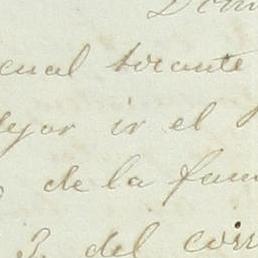 Dom
cual tirante
dejar ir el
de la fam
3. del corr